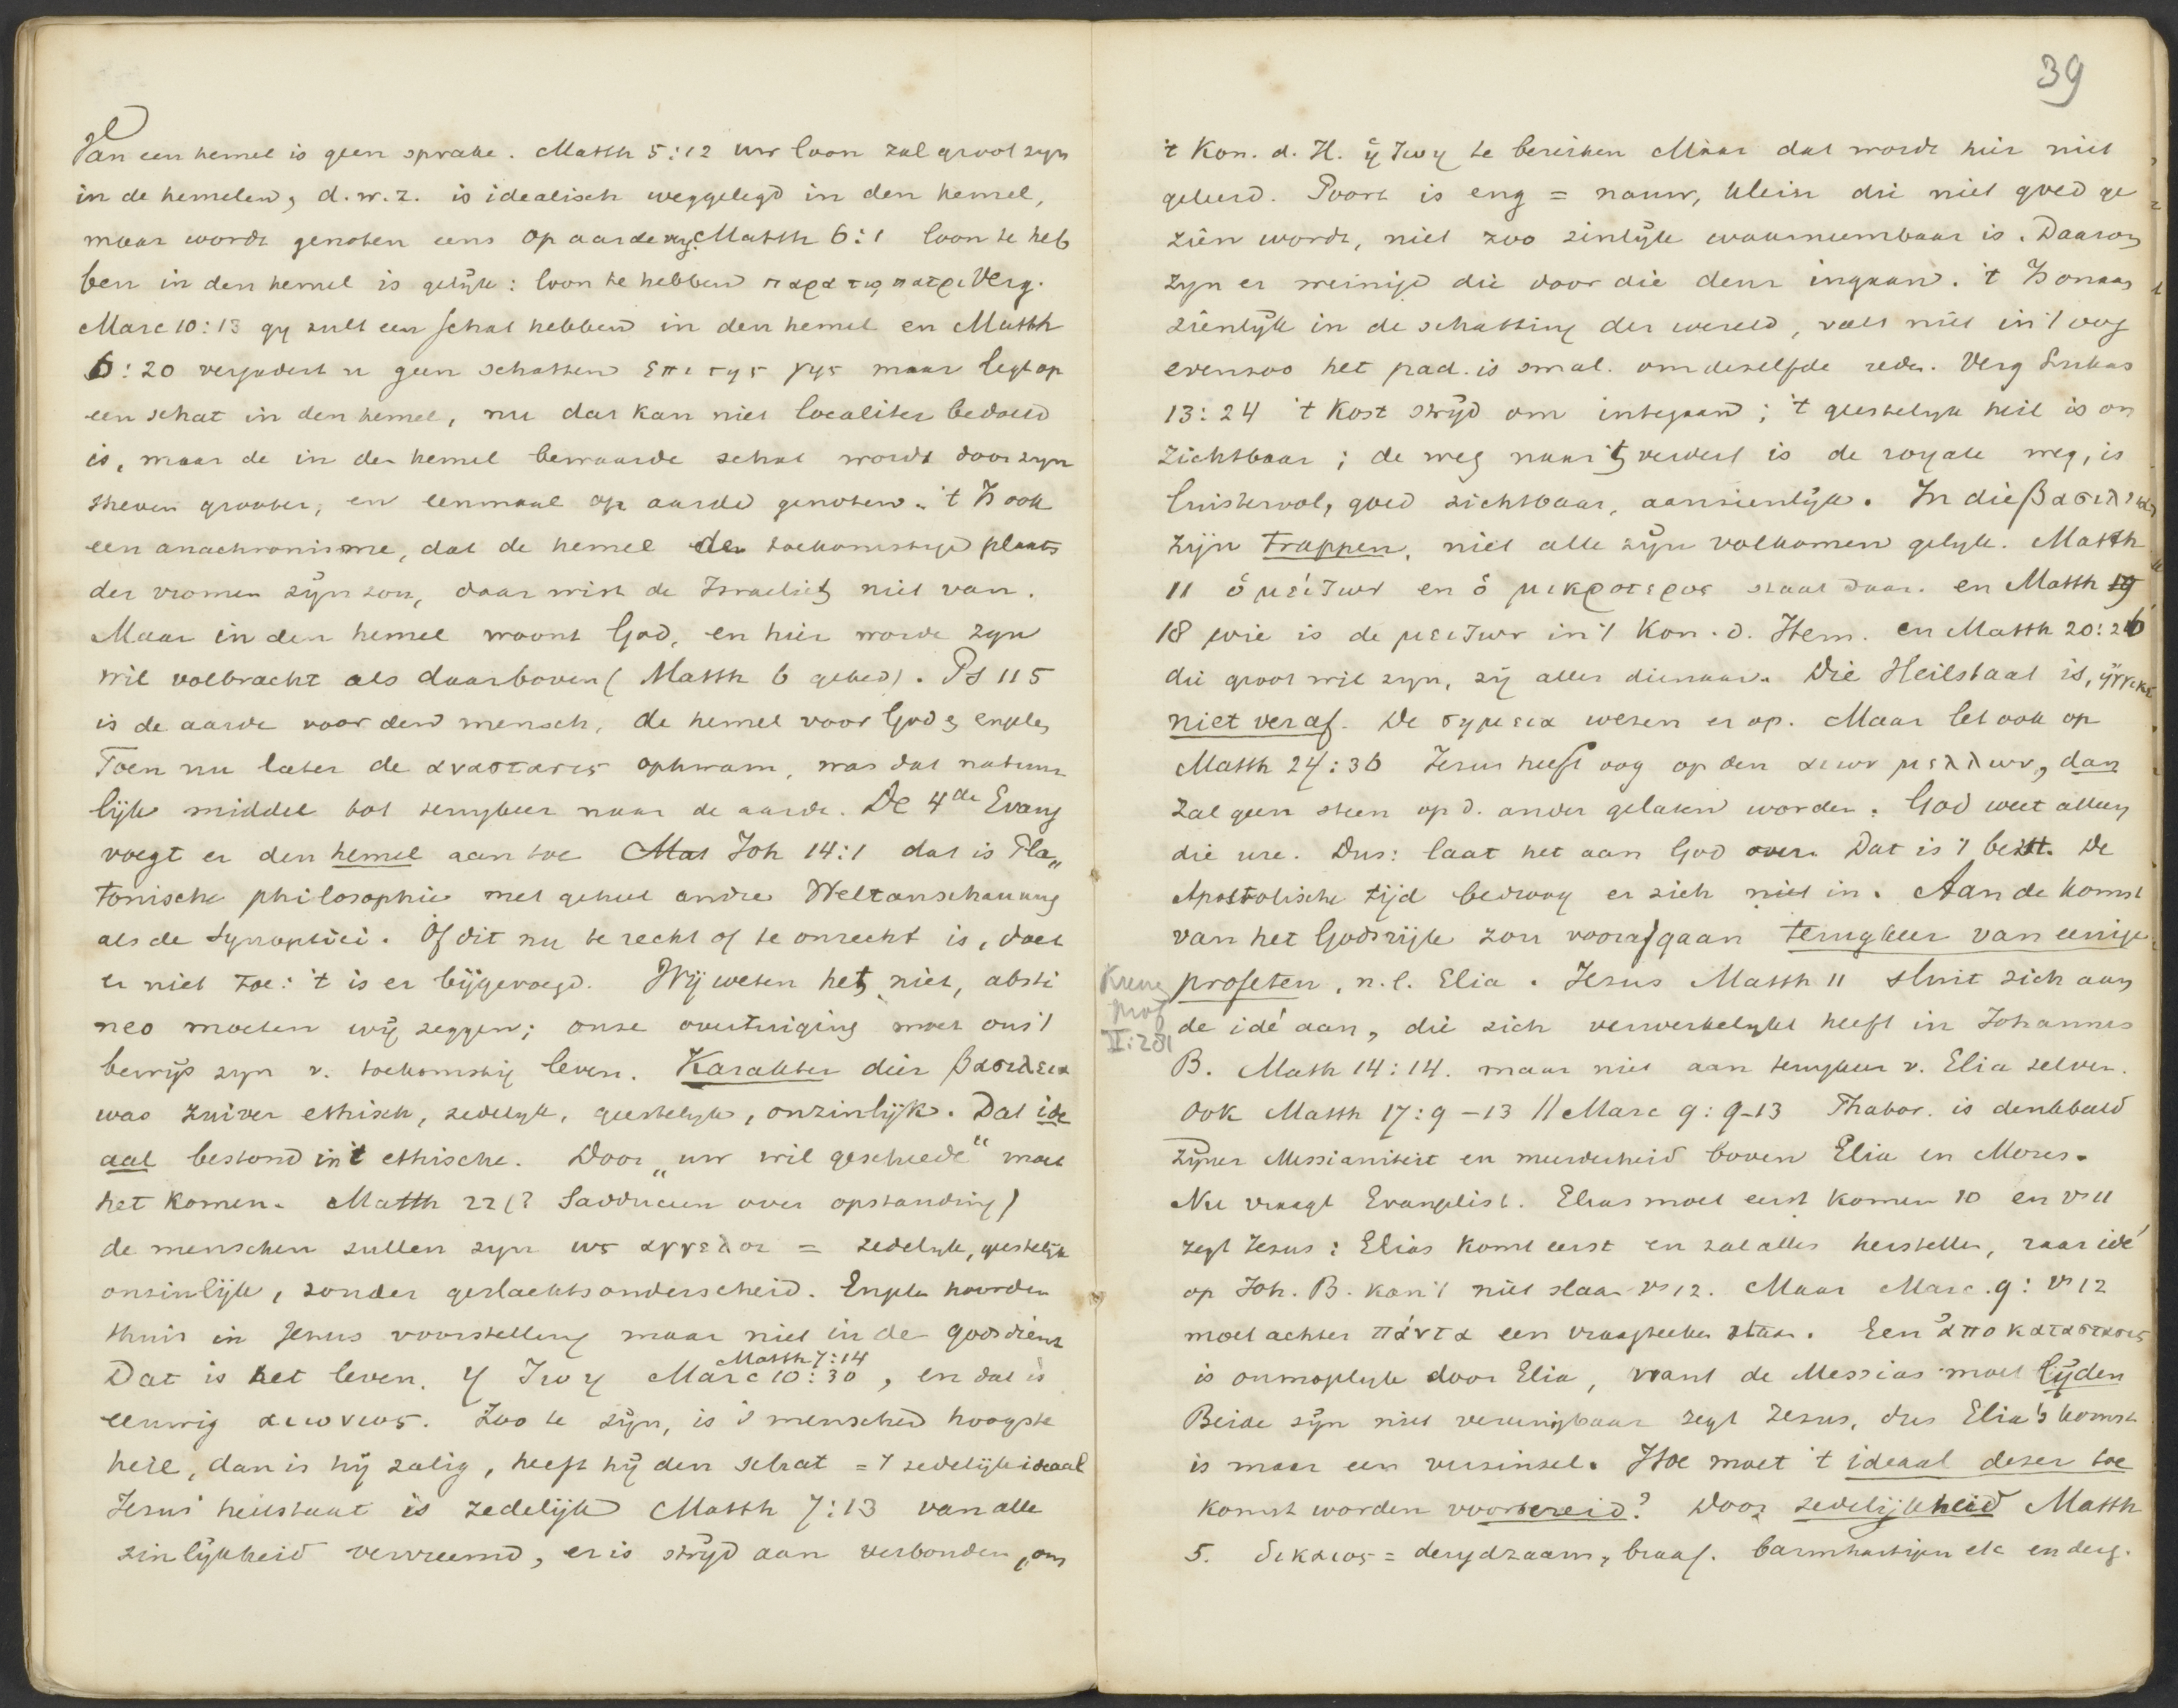 Van een hemel is geen sprake. Matth 5:12 uw loon zal groot zyn
in de hemelen, d.w.z. is idealisch weggelegd in den hemel,
maar wordt genoten eens op aarde. Matth 6:1 loon te heb
ben in den hemel is gelijk: loon te hebben παρα τῳ πατρι Verg.
Marc 10:13 gy zult een schat hebben in den hemel en Matth
6:20 vergadert u geen schatten επι της γης maar legt op
een schat in den hemel, nu dat kan niet localiter bedoeld
is, maar de in den hemel bewaarde schat wordt door zyn
streven grooter, en eenmaal op aarde genoten. 't Is ook
een anachronisme, dat de hemel de toekomstige plaats
der vromen zijn zou, daar wist de Israeliet niet van.
Maar in den hemel woont God, en hier worde zyn
wil volbracht als daarboven (Matth 6 gebed). Ps 115
is de aarde voor den mensch, de hemel voor God & engelen
Toen nu later de αναστασις opkwam, was dat natuur
lijk middel tot terugkeer naar de aarde. De 4de Evang
voegt er den hemel aan toe Mat Joh 14:1 dat is Pla„
tonische philosophie met geheel andre Weltanschauung
als de Synoptici. Of dit nu te recht of te onrecht is, doet
er niet toe: 't is er bijgevoegd. Wij weten het niet, absti
neo moeten wij zeggen; onze overtuiging moet ons 't
bewijs zyn v. toekomstig leven. Karakter dier βασιλεια
was zuiver ethisch, zedelyk, geestelyk, onzinlijk. Dat ide
aal bestond in 't ethische. Door „uw wil geschiede" moet
het komen. Matth 22 (? Sadduceen over opstanding)
de menschen zullen zyn ως αγγελοι = zedelyk, geestelijk
onzinlijk, zonder geslachtsonderscheid. Engelen hoorden
thuis in Jezus voorstelling maar niet in de godsdienst
Matth 7:14
Dat is het leven. η ζωη Marc 10:30, en dat is
eeuwig αιωνιος. Zoo te zijn, is 's menschen hoogste
heil, dan is hij zalig, heeft hij den schat = 't zedelijk ideaal
Jezus' heilstaat is zedelijk Matth 7:13 van alle
zinlijkheid vervreemd, er is strijd aan verbonden, om
39
't Kon. d. H. η ζωη te bereiken Maar dat wordt hier niet
geleerd. Poort is eng = nauw, klein die niet goed ge
zien wordt, niet zoo zinlijk waarneembaar is. Daarom
zyn er weinige die door die deur ingaan. 't Is onaan
zienlijk in de schatting der wereld, valt niet in 't oog
evenzoo het pad is smal om dezelfde reden. Verg Lukas
13:24 't Kost strijd om integaan; 't geestelyk heil is on
zichtbaar; de weg naar 't verderf is de royale weg, is
luistervol, goed zichtbaar, aanzienlijk. In die βασιλεια
zijn trappen, niet alle zijn volkomen gelijk. Matth
11 ὁ μείζων en ὁ μικροτερος staat daar. en Matth 19
18 wie is de μειζων in 't Kon. d. Hem. en Matth 20:26
die groot wil zyn, zij aller dienaar. Die Heilstaat is, ἤγγικε
niet veraf. De σημεια wezen er op. Maar let ook op
Matth 24:36 Jezus heeft oog op den αιων μελλων, dan
zal geen steen op d. ander gelaten worden. God weet alleen
die ure. Dus: laat het aan God over. Dat is 't best. De
Apostolische tijd bedroog er zich niet in. Aan de komst
van het Godsrijk zou voorafgaan terugkeer van eenige
Kuen
Prof
II:281
profeten, n.l. Elia. Jezus Matth 11 sluit zich aan
de idé aan, die zich verwerkelykt heeft in Johannes
B. Math 14:14. maar niet aan terugkeer v. Elia zelven.
Ook Matth 17:9-13 // Marc 9:9-13 Thabor. is denkbeeld
zijner Messianiteit en meerderheid boven Elia en Mozes.
Nu vraagt Evangelist. Elias moet eerst komen 10 en vs 11
zegt Jezus: Elias komt eerst en zal alles herstellen, naar idé
op Joh. B. kan 't niet slaan vs 12. Maar Marc. 9: vs 12
moet achter πάντα een vraagteeken staan. Een ἀποκαταστασις
is onmogelyk door Elia, want de Messias moet lijden
Beide zijn niet vereenigbaar zegt Jezus, dus Elia's komst
is maar een verzinsel. Hoe moet 't ideaal dezer toe
komst worden voorbereid? Door zedelijkheid Matth
5. δικαιος = deugdzaam, braaf. barmhartigen etc en derg.